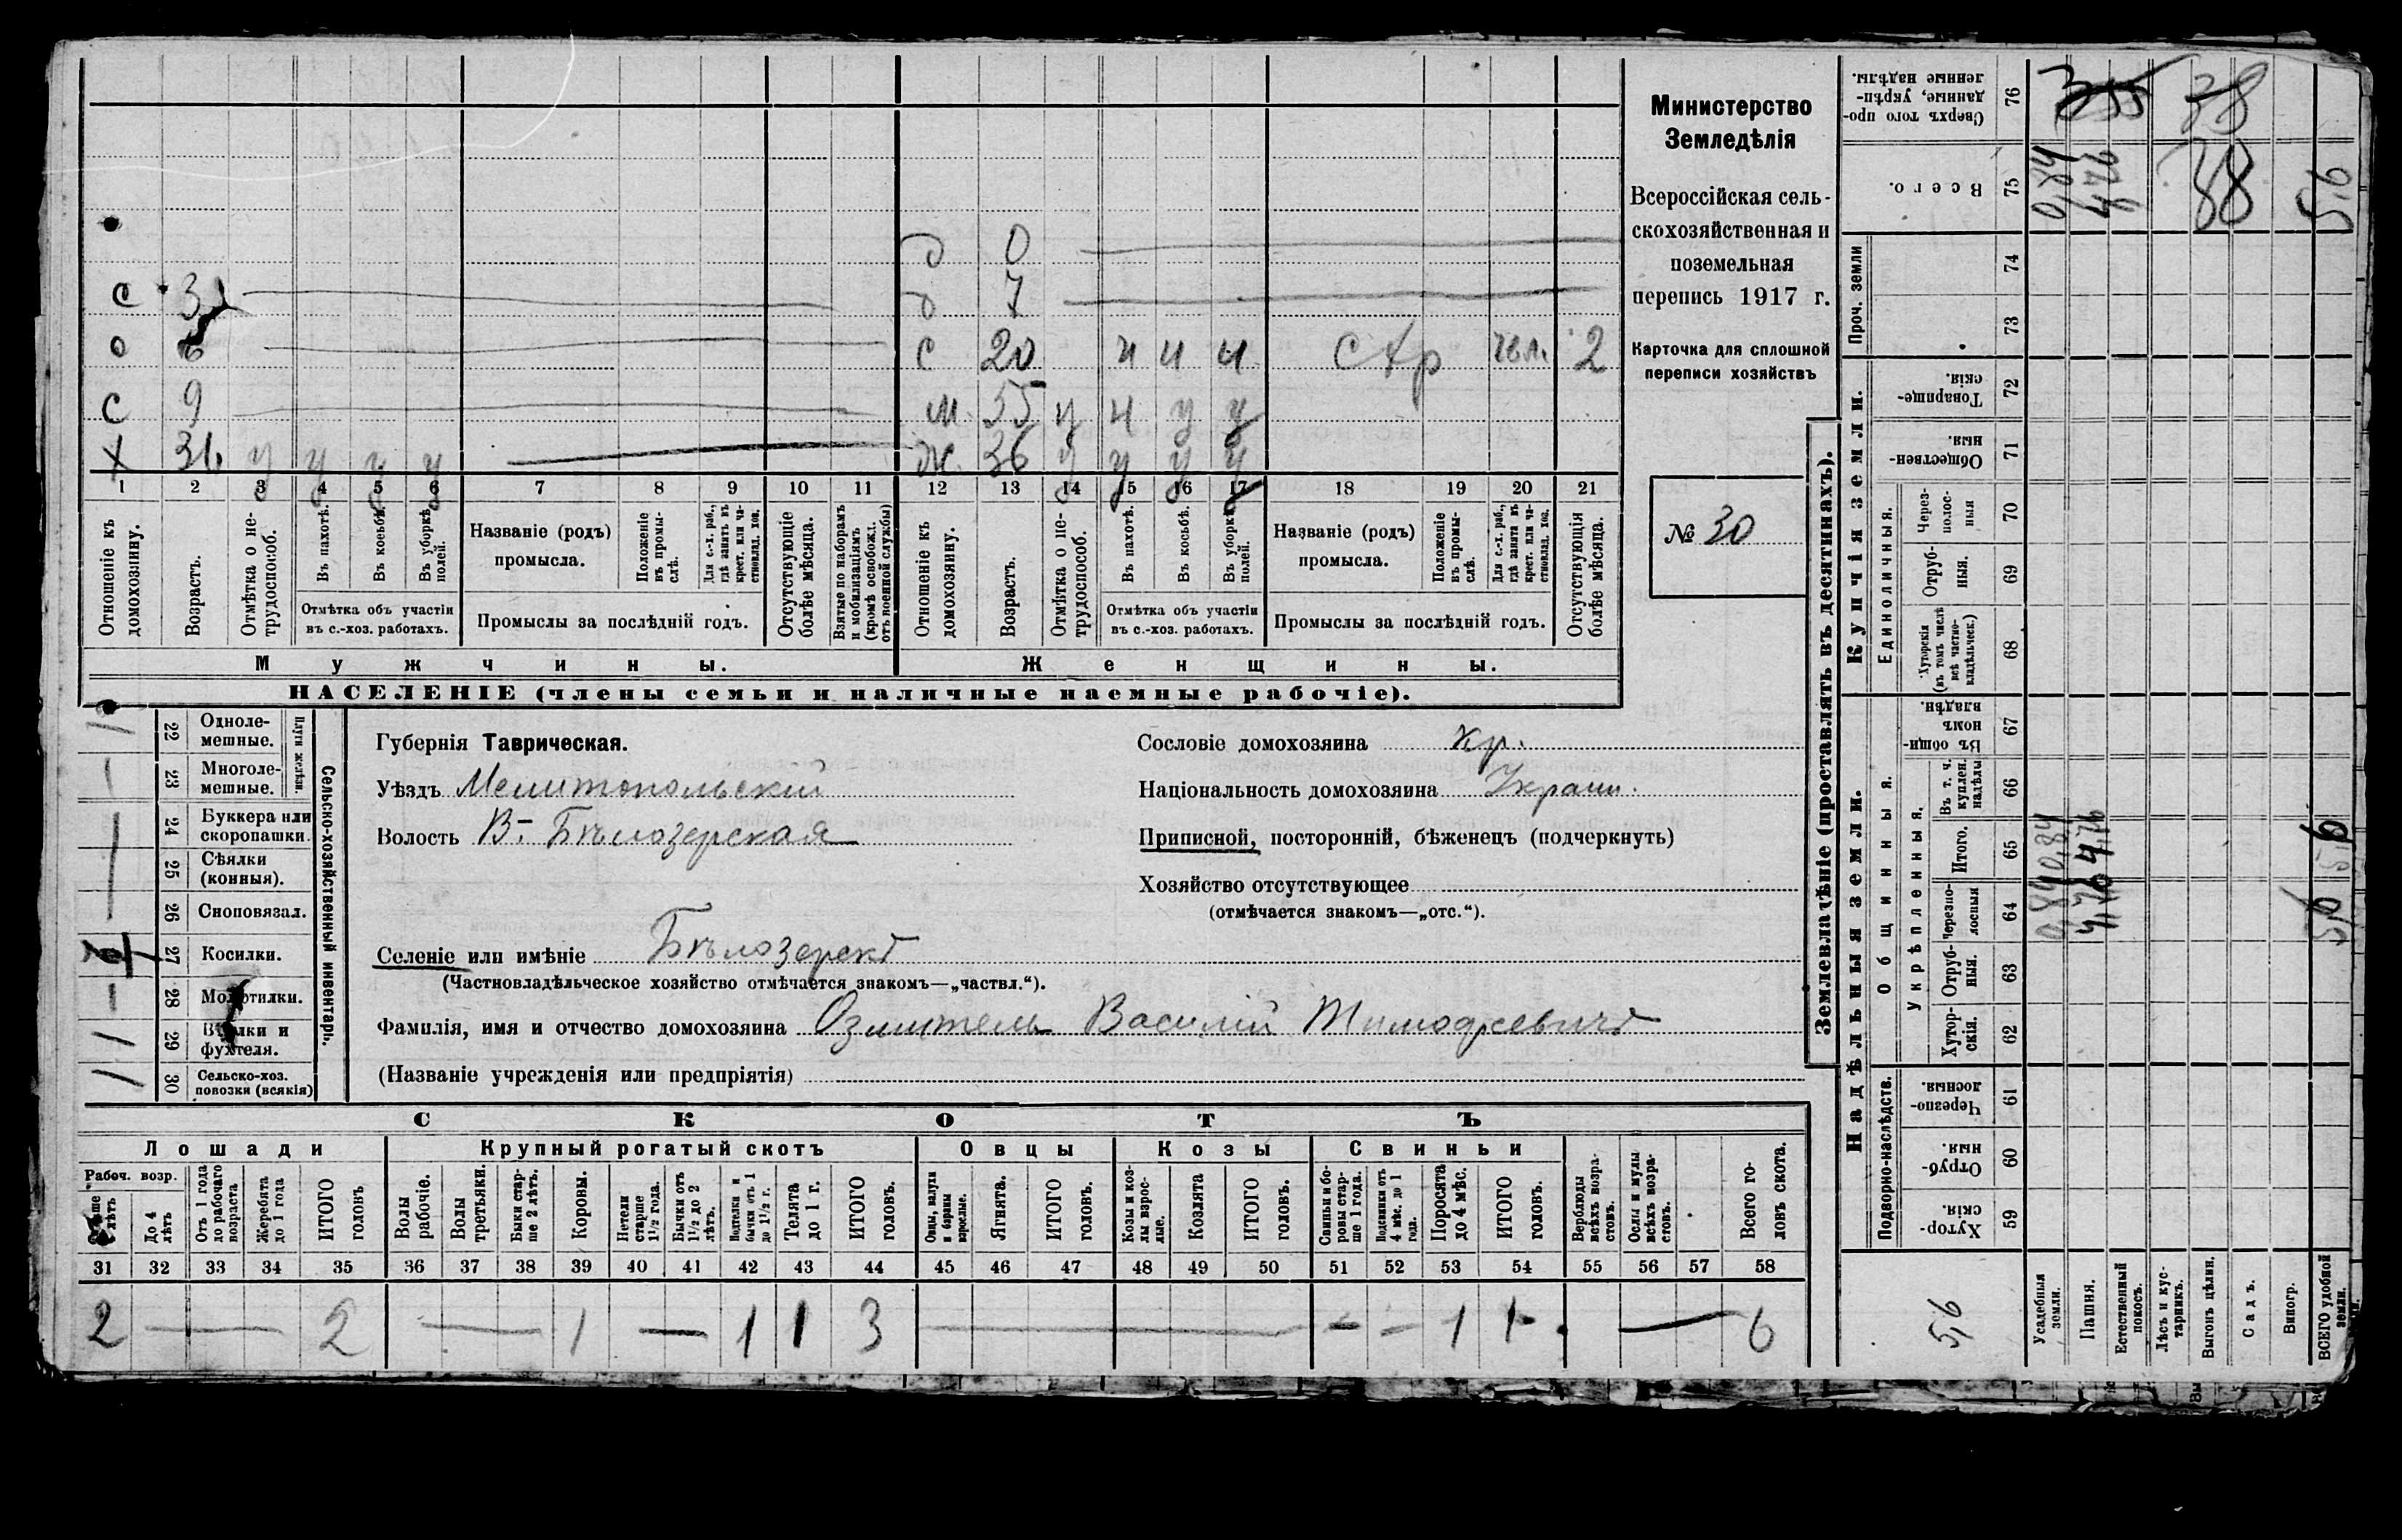 Министерство
Земледѣлія
Всероссійская сель-
скохозяйственная и
поземельная
перепись 1917 г.
Карточка для сплошной
переписи хозяйствъ
№ 30
д 0
с 3
д 7
с 20 ч ч ч 2
с 9
м. 55 у ч у у
х 31. у у у у
ж. 36 у у у у
1 2 3 4 5 6 7 8 9 10 11 12 13 14 15 16 17 18 19 20 21
Отношеніе къ домохозяину.
Возрастъ.
Отмѣтка о не-трудоспособ.
Въ пахотѣ.
Въ косьбѣ.
Въ уборкѣ полей.
Отмѣтка объ участіи
въ с.-хоз. работахъ.
Названіе (родъ)
промысла.
Положеніе въ промы-слѣ.
Для с.-х. раб., гдѣ занятъ въ крест. или ча-стновлад. хоз.
Промыслы за послѣдній годъ.
Отсутствующіе болѣе мѣсяца.
Взятые по наборамъ и мобилизаціямъ (кромѣ освобожд. отъ военной службы)
Отношеніе къ домохозяину.
Возрастъ.
Отмѣтка о не-трудоспособ.
Въ пахотѣ.
Въ косьбѣ.
Въ уборкѣ полей.
Отмѣтка объ участіи
въ с.-хоз. работахъ.
Названіе (родъ)
промысла.
Положеніе въ промы-слѣ.
Для с.-х. раб., гдѣ занята въ крест. или ча-стновлад. хоз.
Промыслы за послѣдній годъ.
Отсутствующія болѣе мѣсяца.
Мужчины. Женщины.
НАСЕЛЕНІЕ (члены семьи и наличные наемные рабочіе).
Сельско-хозяйственный инвентарь.
Плуги желѣзн.
22 Одноле-мешные.
23 Многоле-мешные.
24 Буккера или скоропашки.
25 Сѣялки (конныя).
26 Сноповязал.
27 Косилки.
28 Молотилки.
29 Вѣялки и фухтеля.
30 Сельско-хоз. повозки (всякія)
Губернія Таврическая.
Уѣздъ Мелитопольскій
Волость В.-Бѣлозерская
Селеніе или имѣніе Бѣлозерскъ
(Частновладѣльческое хозяйство отмѣчается знакомъ—„частвл.“).
Фамилія, имя и отчество домохозяина Озмитель Василій Тимофеевичъ
(Названіе учрежденія или предпріятія)
Сословіе домохозяина кр.
Національность домохозяина Украин.
Приписной, посторонній, бѣженецъ (подчеркнуть)
Хозяйство отсутствующее
(отмѣчается знакомъ—„отс.“).
СКОТЪ
Лошади Крупный рогатый скотъ Овцы Козы Свиньи
Рабоч. возр.
До 4 лѣтъ
Отъ 1 года до рабочаго возраста
Жеребята до 1 года
ИТОГО головъ
Волы рабочіе.
Волы третьяки.
Быки стар-ше 2 лѣтъ.
Коровы.
Нетели старше 1½ года.
Бычки отъ 1½ до 2 лѣтъ.
Подтелки и бычки отъ 1 до 1½ г.
Телята до 1 г.
ИТОГО головъ.
Овцы, валухи и бараны взрослые.
Ягнята.
ИТОГО головъ.
Козы и коз-лы взрос-лые.
Козлята
ИТОГО головъ.
Свиньи и бо-ровы стар-ше 1 года.
Подсвинки отъ 4 мѣс. до 1 года.
Поросята до 4 мѣс.
ИТОГО головъ.
Верблюды всѣхъ возра-стовъ.
Ослы и мулы всѣхъ возра-стовъ.
Всего го-ловъ скота.
31 32 33 34 35 36 37 38 39 40 41 42 43 44 45 46 47 48 49 50 51 52 53 54 55 56 57 58
2 — 2 — 1 — 1 1 3 — - - 1 1 — 6
Землевладѣніе (проставлять въ десятинахъ).
Купчія земли.
Надѣльныя земли.
Сверхъ того про-данные, укрѣп-ленные надѣлы. 76
Всего. 75 0,84 4,76 38 5,6
Проч. земли 74 73
Товарище-скія. 72
Обществен-ныя 71
Единоличныя.
Через-полос-ныя 70
Отруб-ныя. 69
Хуторскія (въ томъ числѣ всѣ частно-владѣльческ.) 68
Общинныя.
Въ общи-номъ владѣн. 67
Укрѣпленныя.
Въ т. ч. куплен. надѣлы 66
Итого. 65 0,84 4,76 5,6
Черезпо-лосныя 64 0,84 4,76 5,6
Отруб-ныя. 63
Хутор-скія. 62
Подворно-наслѣдств.
Черезпо-лосныя. 61
Отруб-ныя. 60
Хутор-скія. 59
5,6
Усадебныя земли.
Пашня.
Естественный покосъ.
Лѣсъ и кус-тарникъ.
Выгонъ цѣлин.
Садъ.
Виногр.
ВСЕГО удобной земли.